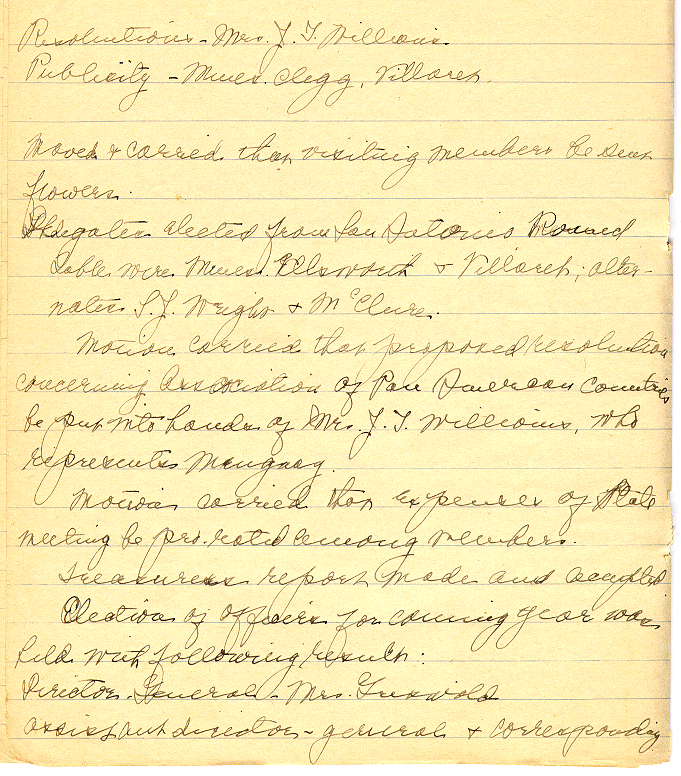 Resolutions - Mrs. J. T. Williams.
Publicity - Mmes. Clegg, Villaret.
Moved & carried that visiting members be sent
flowers.
Delegates elected from San Antonio Round
Table were Mmes. Ellsworth & Villaret; alter-
nates S. J. Wright & McClure.
Motion carried that proposed resolution
concerning Association of Pan American Countries
be put into hands of Mrs. J. T. Williams, who
represents
Motion carried that expenses of State
meeting be pro-rated among members.
Treasurers report made and accepted
Election of officers for coming year was
held with following result:
Director General - Mrs. Griswold
assistant director-general & corresponding